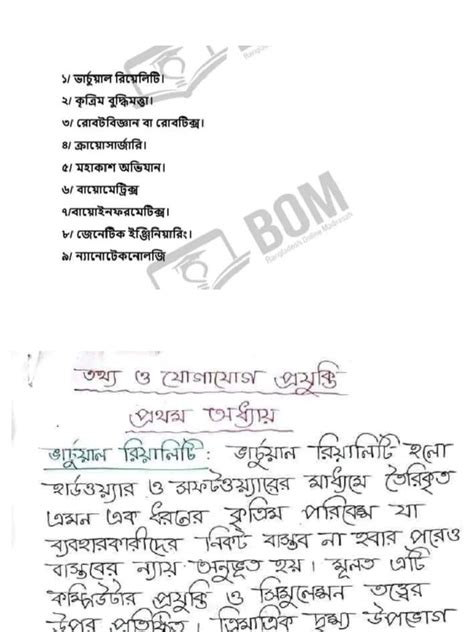 ১/ ভার্চুয়াল রিয়েলিটি।
২/ কৃত্রিম বুদ্ধিমত্তা।
৩/ রোবটবিজ্ঞান বা রোবটিক্স।
৪/ ক্রায়োসার্জারি।
৫/ মহাকাশ অভিযান।
৬/ বায়োমেট্রিক্স
৭/বায়োইনফরমেটিক্স।
৮/ জেনেটিক ইঞ্জিনিয়ারিং।
৯/ ন্যানোটেকনোলজি
BOM
Bangladesh Online Madrasah
তথ্য ও যোগাযোগ প্রযুক্তি
প্রথম অধ্যায়
ভার্চুয়াল রিয়ালিটি: ভার্চুয়াল রিয়ালিটি হলো
হার্ডওয়্যার ও সফটওয়্যারের মাধ্যমে তৈরিকৃত
এমন এক ধরনের কৃত্রিম পরিবেশ যা
ব্যবহারকারীদের নিকট বাস্তব না হবার পরেও
বাস্তবের ন্যায় অনুভূত হয়। মূলত এটি
কম্পিউটার প্রযুক্তি ও সিমুলেশন তত্বের
উপর প্রতিষ্ঠিত। ত্রিমাত্রিক দৃশ্য উপভোগ